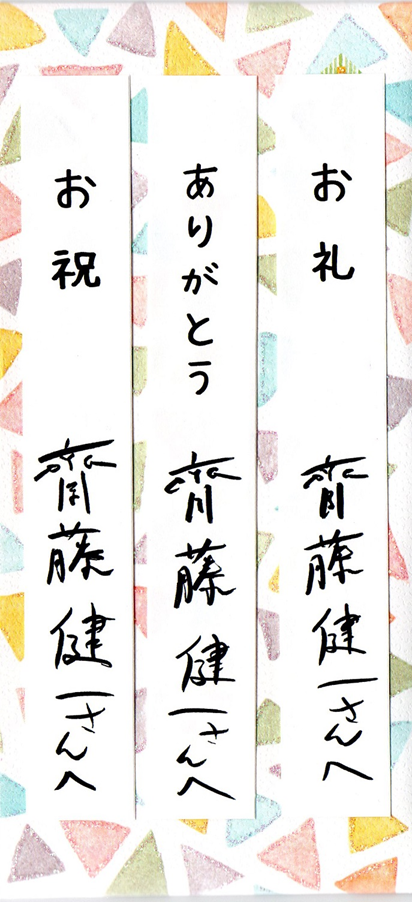 お礼
齊藤健一さんへ
ありがとう
齊藤健一さんへ
お祝
齋藤健一さんへ